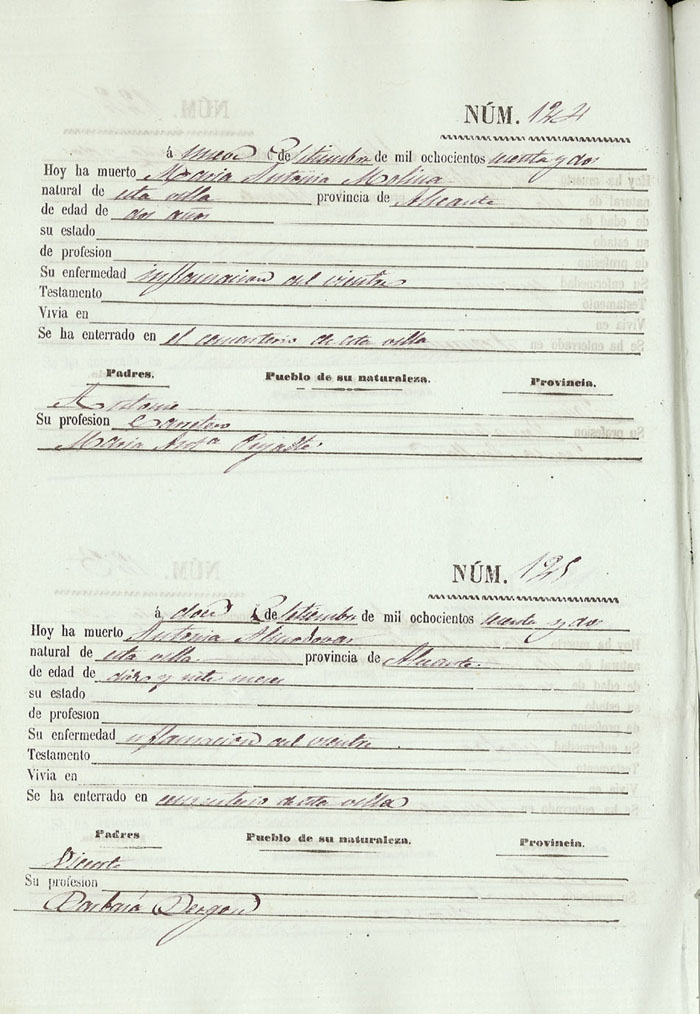 NÚM. 124
á nueve de Setiembre de mil ochocientos sesenta y dos
Hoy ha muerto Maria Antonia Molina
natural de esta villa provincia de Alicante
de edad de dos años
su estado
de profesion
Su enfermedad inflamacion del vientre
Testamento
Vivia en
Se ha enterrado en el cementerio de esta villa
Padres. Pueblo de su naturaleza. Provincia.
Antonio
Su profesion Carretero
Maria Rosa
NÚM. 125
á doce de Setiembre de mil ochocientos sesenta y dos
Hoy ha muerto Antonia Almodovar
natural de esta villa provincia de Alicante
de edad de diez y siete meses
su estado
de profesion
Su enfermedad inflamacion del vientre
Testamento
Vivia en
Se ha enterrado en cementerio de esta villa
Padres Pueblo de su naturaleza. Provincia.
Vicente
Su profesion
Barbara